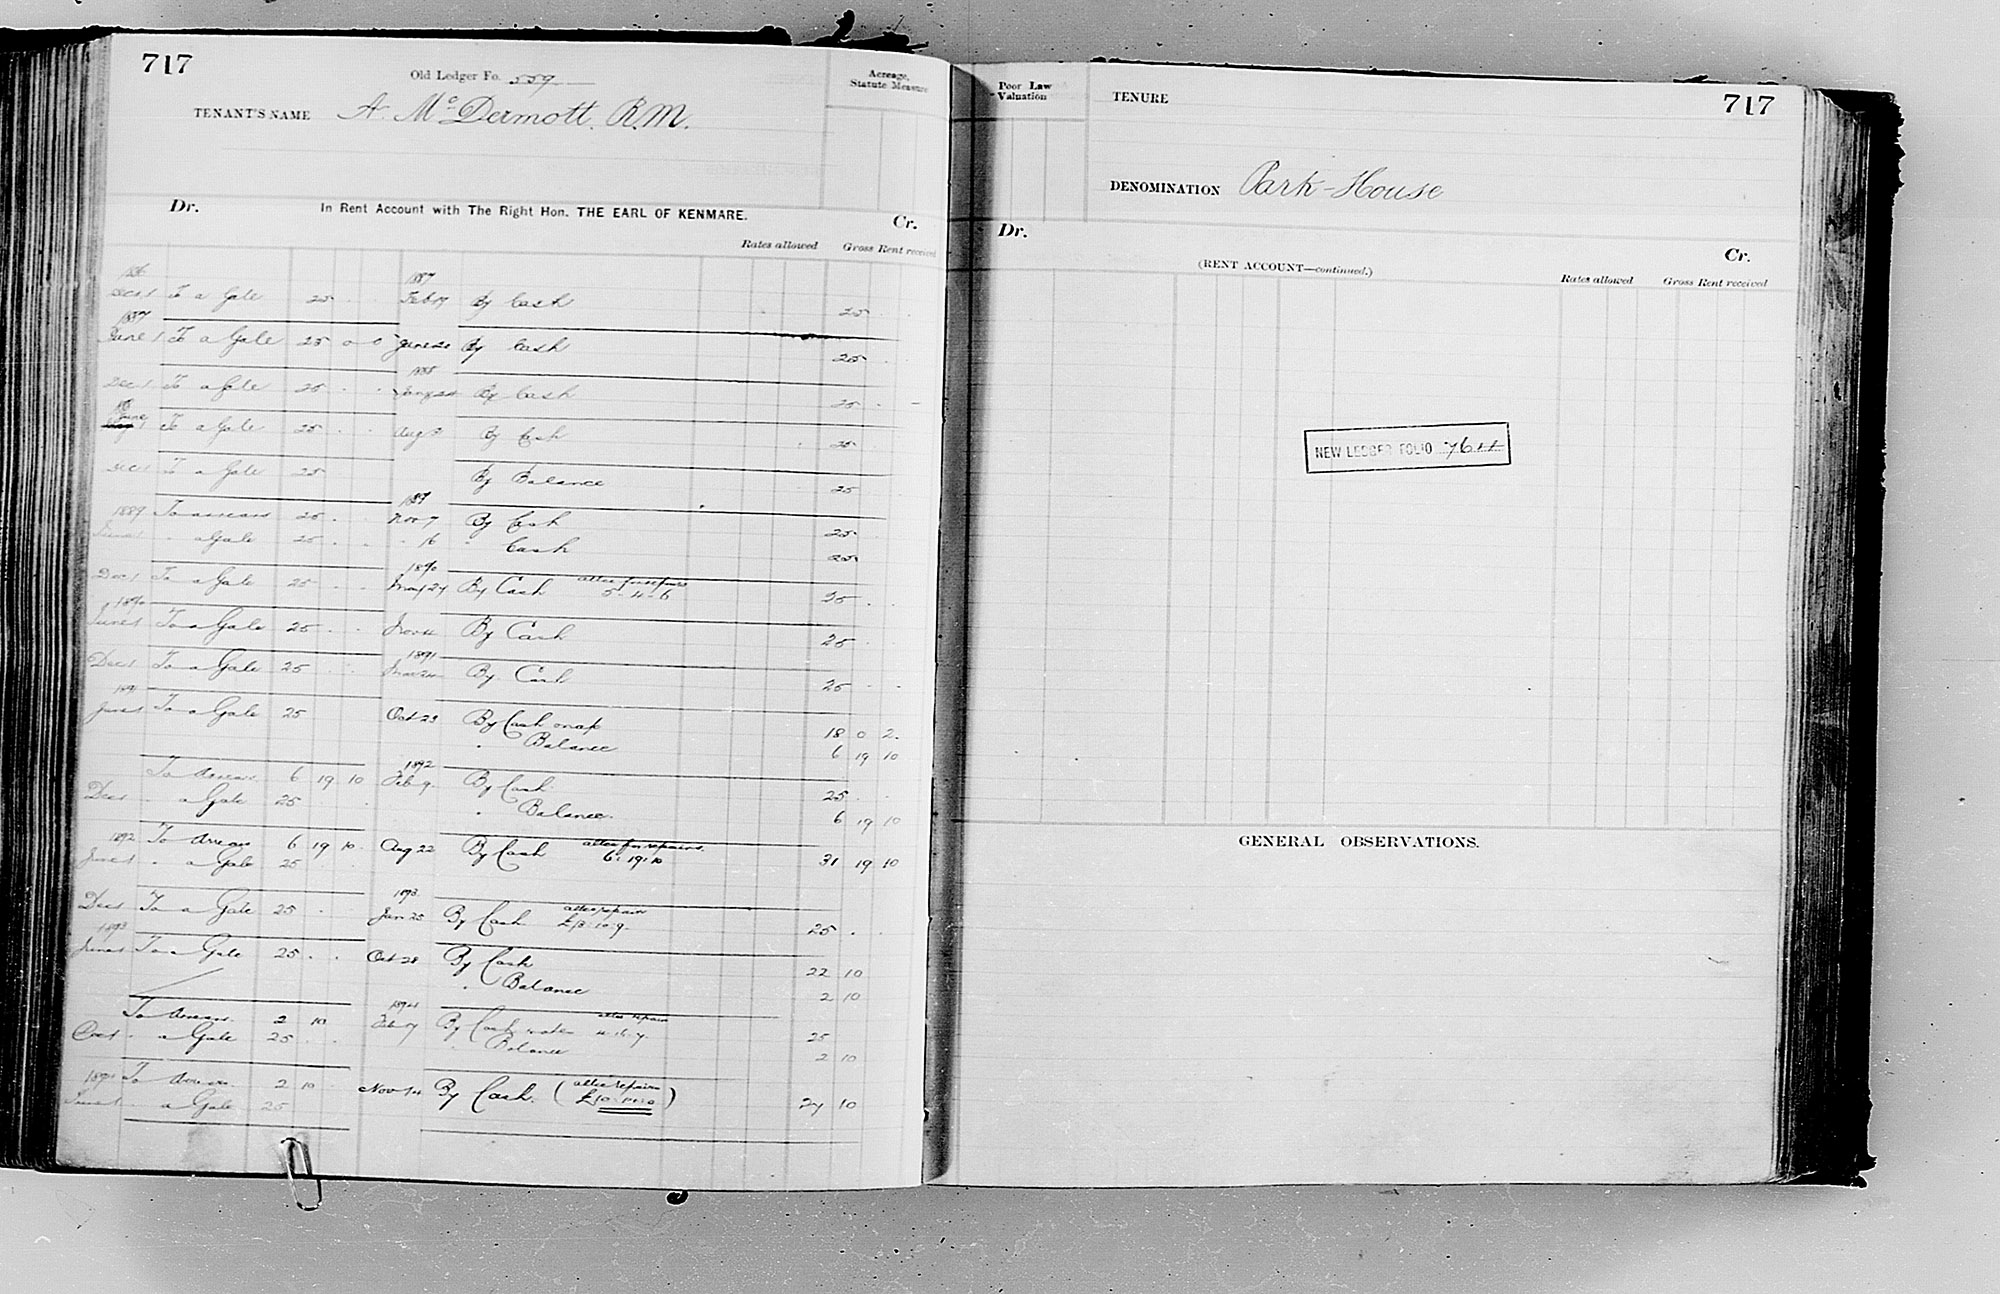 717
Old Ledger Fo. 559
Acreage, Statute Measure
TENANT'S NAME A. McDermott. R.M.
Dr. In Rent Account with The Right Hon. THE EARL OF KENMARE. Cr.
Rates allowed Gross Rent received
1886 1887
Dec 1 To a Gale 25 . . Feb 17 By Cash 25 . .
1887
June 1 To a Gale 25 0 0 June 20 By Cash 25 . .
1888
Dec 1 To a Gale 25 . . Jany By Cash 25 . -
June 1 To a Gale 25 . . Aug By Cash 25
Dec 1 To a Gale 25 By Balance 25
1889
1889 To arrears 25 . . Nov 7 By Cash 25
June 1 " a Gale 25 . . " 16 " Cash 25
1890
Dec 1 To a Gale 25 . . May 27 By Cash allce for repairs 5-4-6 25 . .
1890
June 1 To a Gale 25 . . Nov By Cash 25
1891
Dec 1 To a Gale 25 . . By Cash 25 . .
1891
June 1 To a Gale 25 Oct 23 By Cash on a/c 18 0 2
" Balance 6 19 10
1892
To Arrears 6 19 10 Feb 9 By Cash 25 . .
Dec 1 " a Gale 25 . . " Balance 6 19 10
1892 To Arrears 6 19 10 Aug 22 By Cash allce for repairs 6.19.10 31 19 10
June 1 " a Gale 25
1893
Dec 1 To a Gale 25 . Jan 25 By Cash allce repairs £13.10.9. 25 . .
1893
June 1 To a Gale 25 . . Oct 28 By Cash 22 10
" Balance 2 10
1894
To Arrears 2 10 Feb 17 By Cash allce repairs 25
Dec 1 " a Gale 25 . . " Balance 2 10
1894 To Arrears 2 10 Nov 14 By Cash. (allce repairs £10 ) 27 10
June 1 " a Gale 25
Poor Law Valuation
TENURE
717
DENOMINATION Park-House
Dr. Cr.
(RENT ACCOUNT—continued.)
Rates allowed Gross Rent received
NEW LEDGER FOLIO
GENERAL OBSERVATIONS.